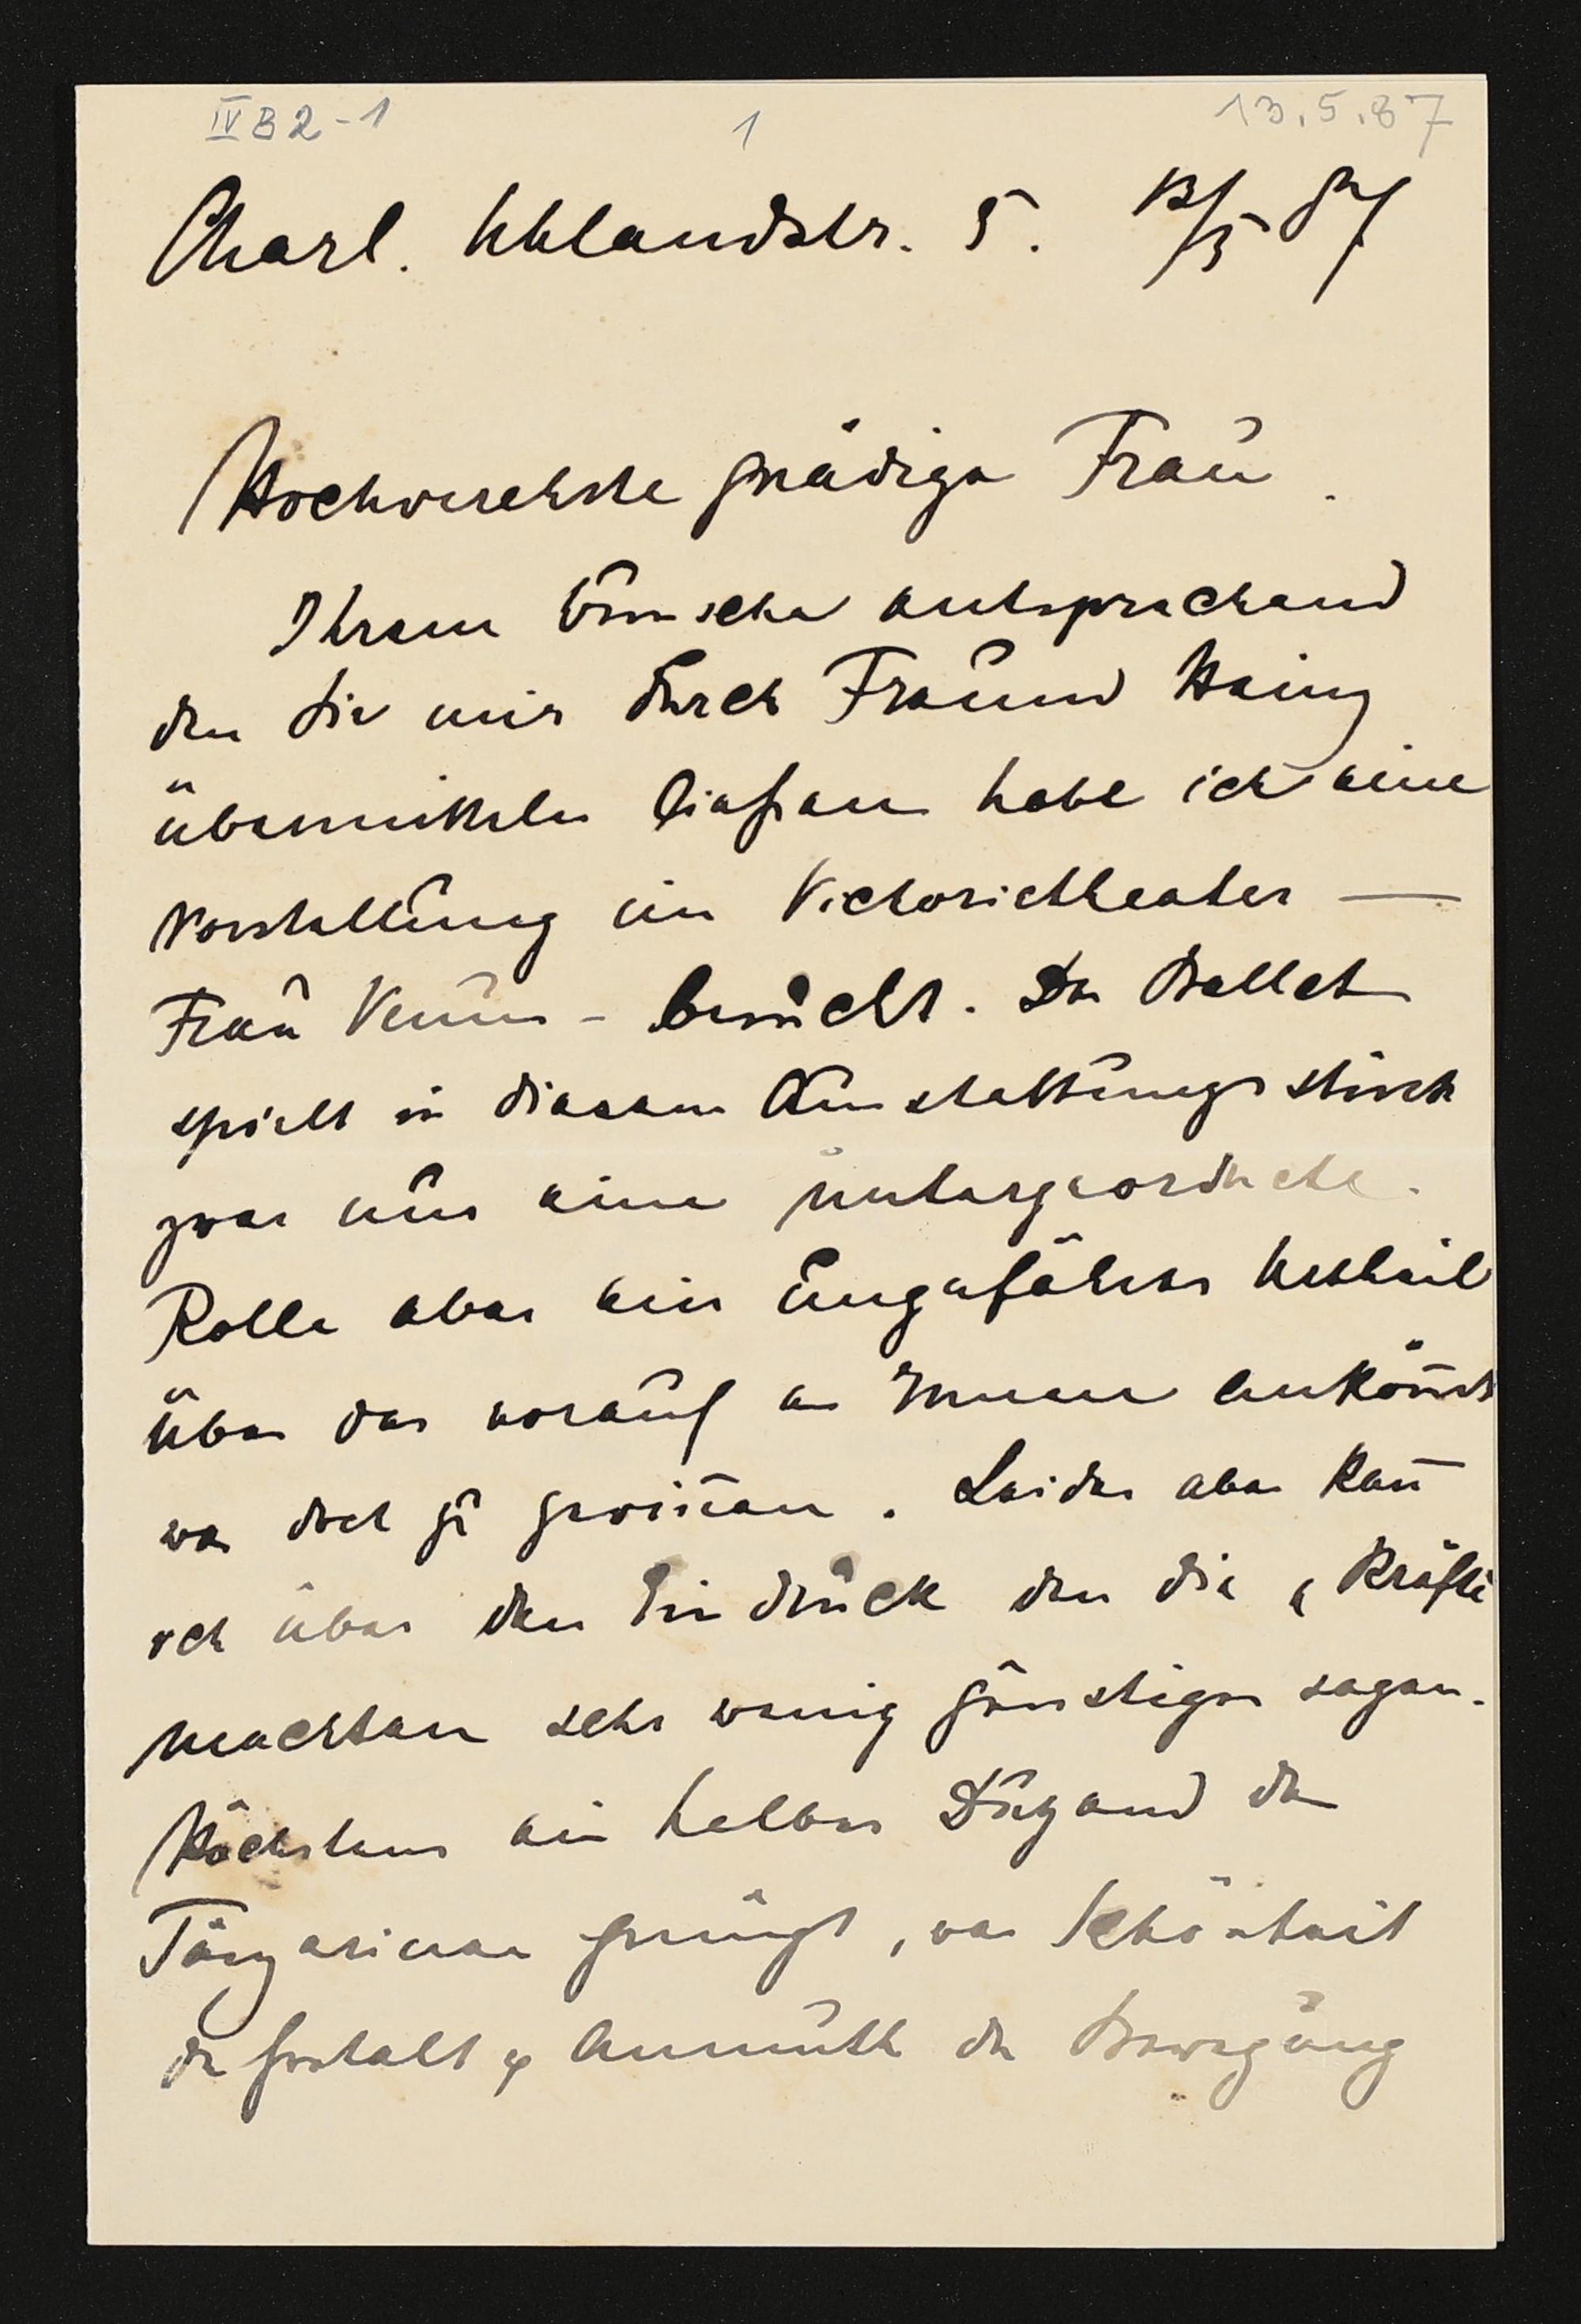 IV B 2 - 1
1
13.5.87
Charl. Uhlandstr. 5. 13/5 87
Hochverehrte gnädige Frau.
Ihrem Wunsche entsprechend
den Sie mir durch Freund Heinz
übermitteln ließen habe ich eine
Vorstellung im Victoriatheater —
Frau Venus - besucht. Das Ballet
spielt in diesem Ausstattungsstück
zwar nur eine untergeordnete
Rolle aber ein ungefähres Urtheil
über das worauf es Ihnen ankom̅t
war doch zu gewin̅en. Leider aber kan̅
ich über den Eindruck den die „Kräfte
machten sehr wenig günstiges sagen.
Höchstens ein halbes Dutzend der
Tänzerinnen genügt, was Schönheit
der Gestalt & Anmuth der Bewegung